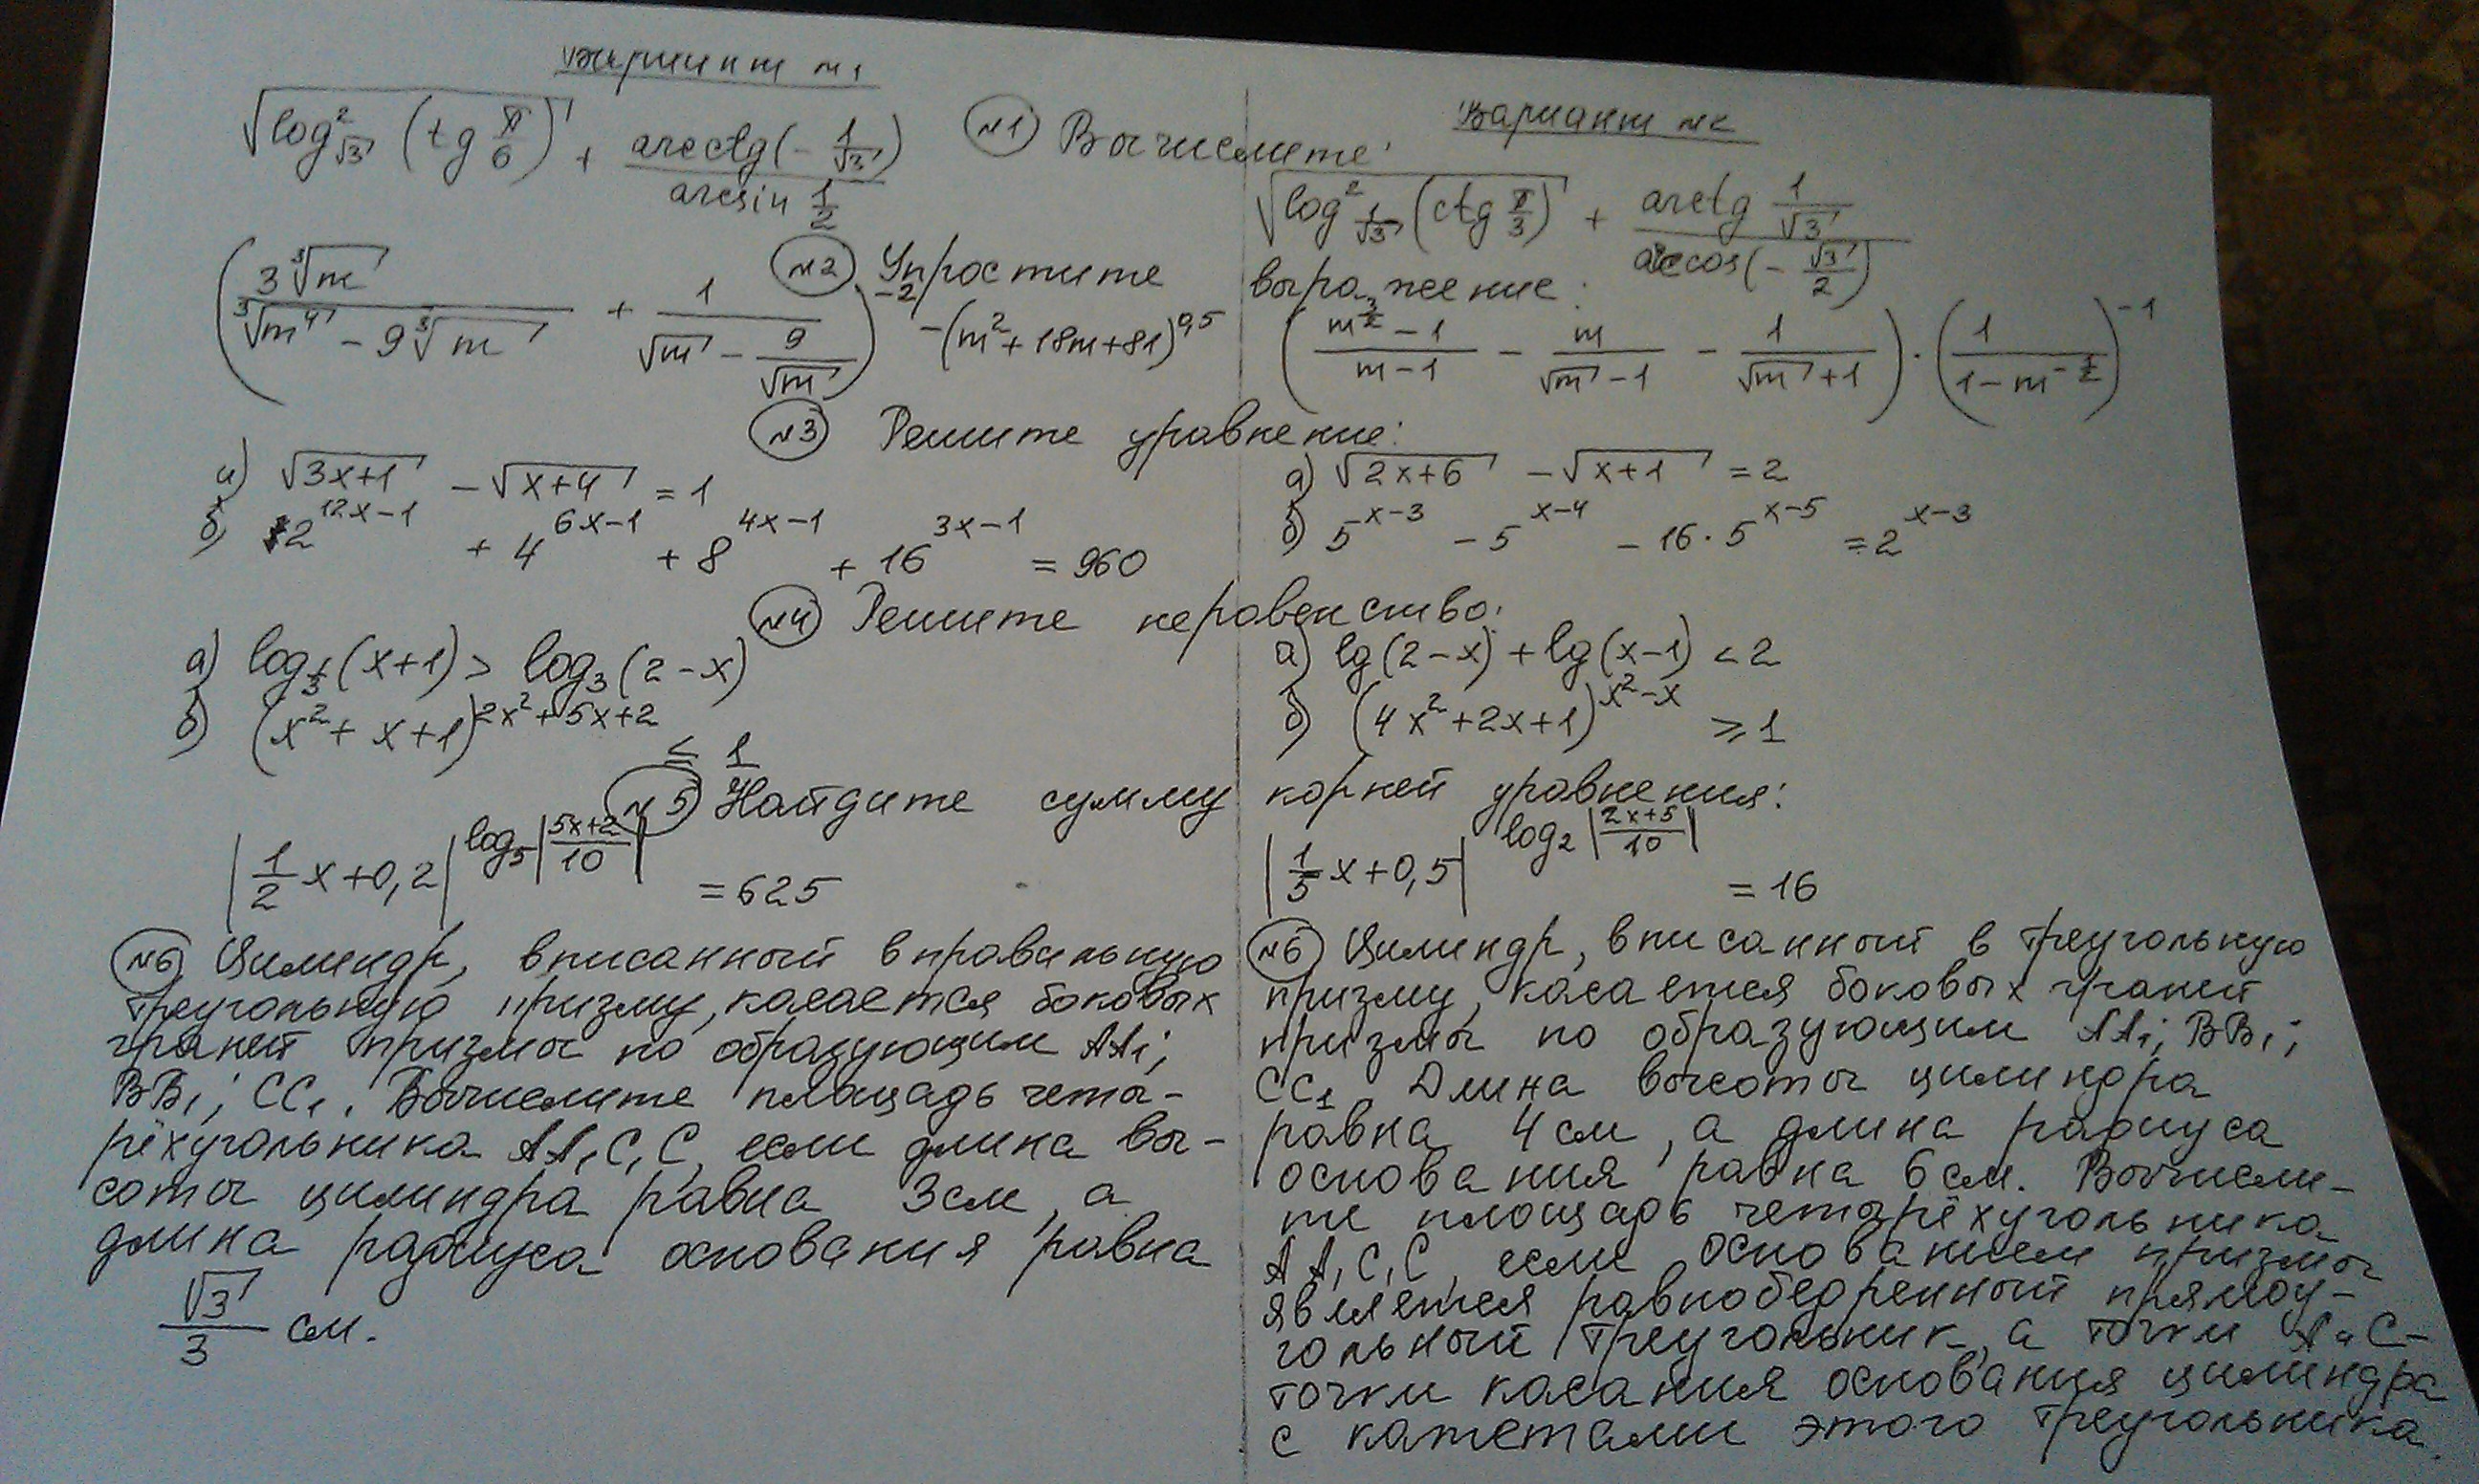 Вариант №1
Вариант №2
№1 Вычислите:
√(log²_√3 (tg π/6)) + arcctg(-1/√3) / arcsin 1/2
√(log²_1/√3 (ctg π/3)) + arctg 1/√3 / arccos(-√3/2)
№2 Упростите выражение:
(3∛m / (∛m⁴ - 9∛m) + 1 / (√m - 9/√m))⁻² - (m² + 18m + 81)^0,5
((m^(3/2) - 1)/(m - 1) - m/(√m - 1) - 1/(√m + 1)) · (1/(1 - m^(-1/2)))⁻¹
№3 Решите уравнение:
а) √(3x+1) - √(x+4) = 1
б) 2^(12x-1) + 4^(6x-1) + 8^(4x-1) + 16^(3x-1) = 960
а) √(2x+6) - √(x+1) = 2
б) 5^(x-3) - 5^(x-4) - 16·5^(x-5) = 2^(x-3)
№4 Решите неровенство:
а) log_1/3 (x+1) > log₃ (2-x)
б) (x² + x + 1)^(2x² + 5x + 2) ≤ 1
а) lg(2-x) + lg(x-1) < 2
б) (4x² + 2x + 1)^(x² - x) ≥ 1
№5 Найдите сумму корней уравнения:
|1/2 x + 0,2|^(log₅ |(5x+2)/10|) = 625
|1/5 x + 0,5|^(log₂ |(2x+5)/10|) = 16
№6 Цилиндр, вписанный в правильную
треугольную призму, касается боковых
граней призмы по образующим AA₁;
BB₁; CC₁. Вычислите площадь четы-
рёхугольника AA₁C₁C, если длина вы-
соты цилиндра равна 3см, а
длина радиуса основания равна
√3/3 см.
№6 Цилиндр, вписанный в треугольную
призму, касается боковых граней
призмы по образующим AA₁; BB₁;
CC₁. Длина высоты цилиндра
равна 4см, а длина радиуса
основания равна 6см. Вычисли-
те площадь четырёхугольника
AA₁C₁C, если основанием призмы
является равнобедренный прямоу-
гольный треугольник, а точки A и C-
точки касания основания цилиндра
с катетами этого треугольника.